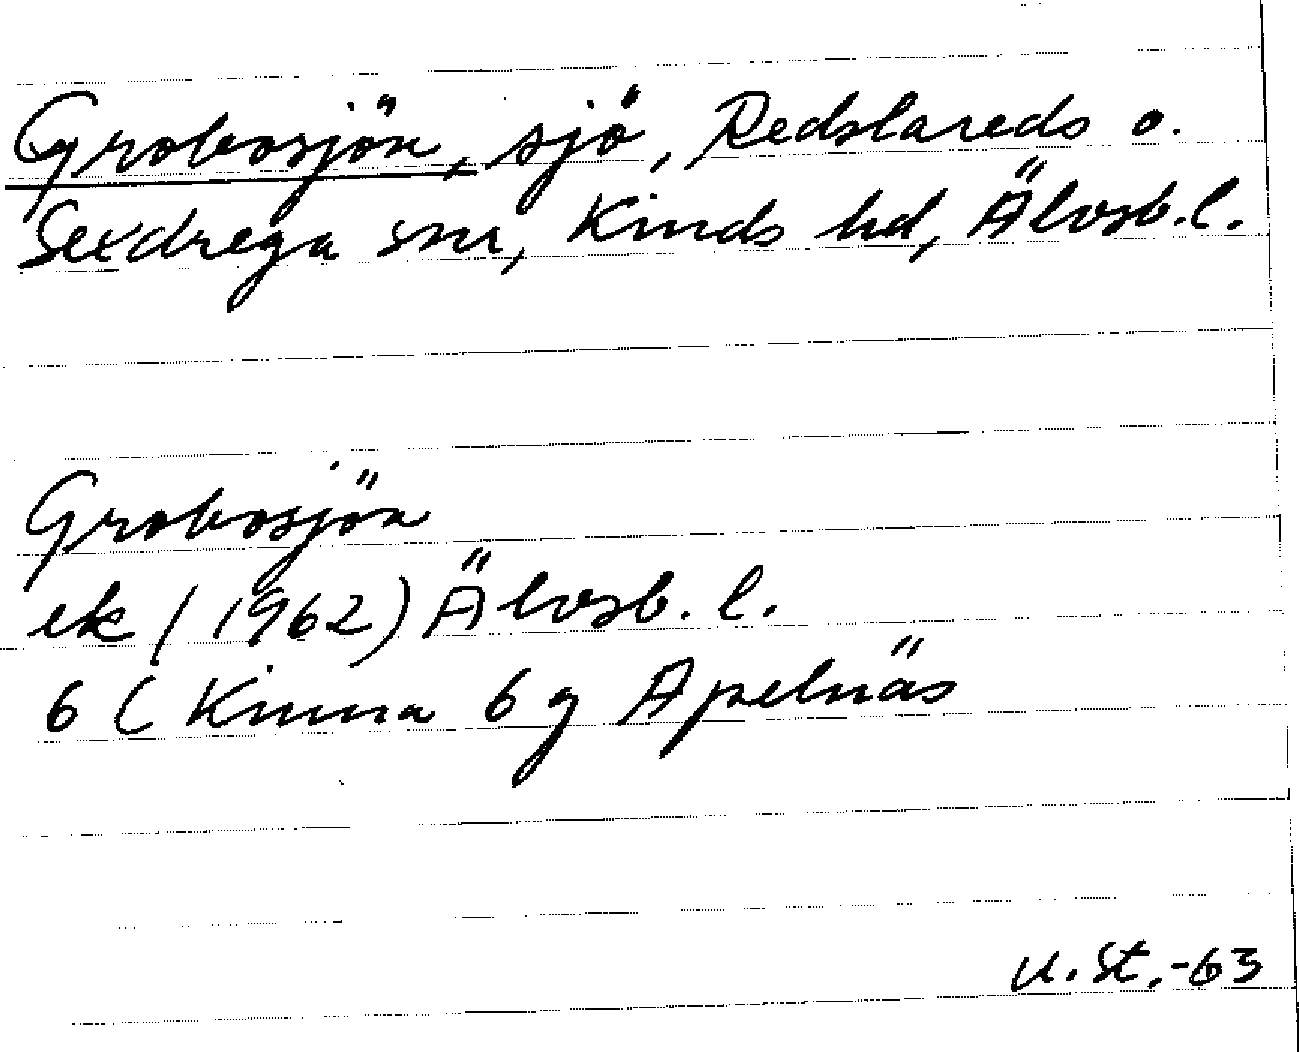 Grobosjön, sjö, Redslareds o.
Sexdrega snr, Kinds hd, Älvsb. l.
Grobosjön
ek (1962) Älvsb. l.
6 ( Kinna 6 g Apelnäs
u. St. -63